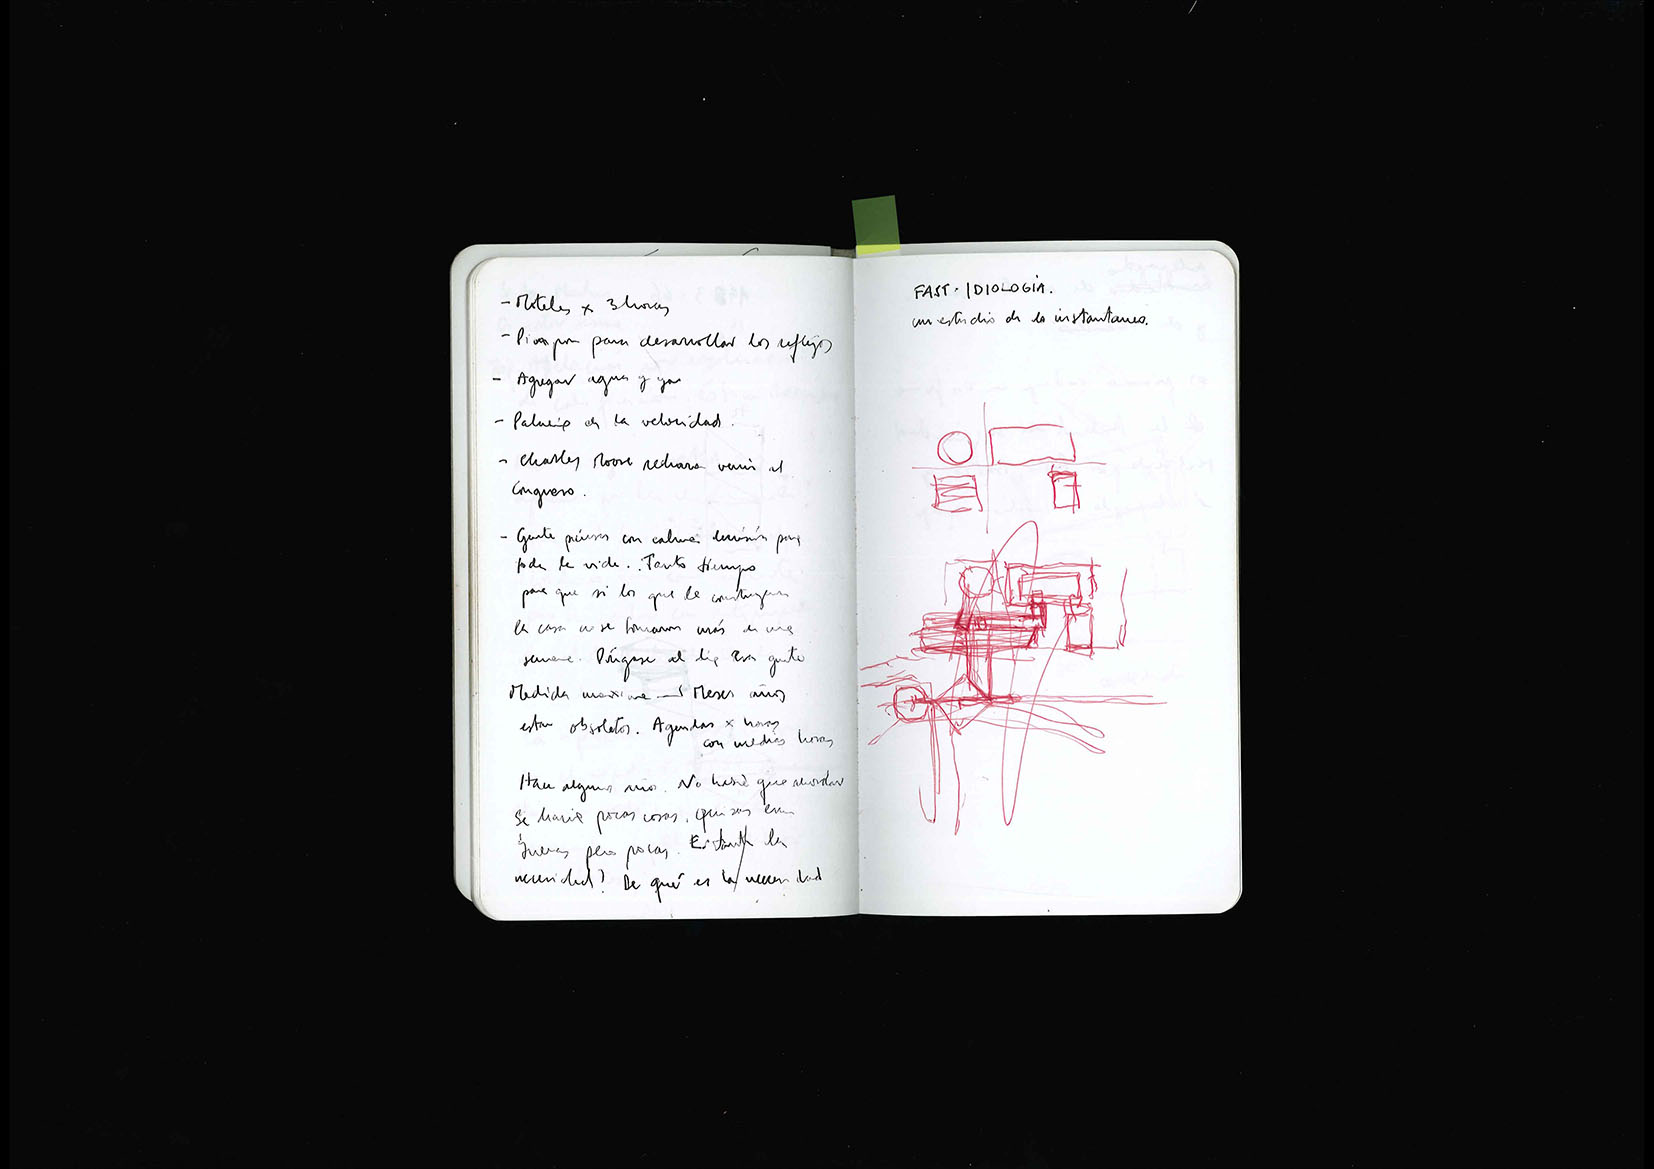 - Moteles x 3 horas
- para desarrollar los reflejos
- Agregar agua y ya
- Palacio de la velocidad.
- Charles Moore rechaza venir al
congreso.
- Gente piensa con calma para
toda la vida. Tanto tiempo
para que si los que le construyen
la casa no se tomaron más de una
semana. Póngase al día
Medida maxima → Meses años
estan obsoletos. Agendas x horas
con medias horas
Hace algunos años. No había que
Se hacía pocas cosas. Quizas eran
buenas pero pocas. la
necesidad? De qué es la necesidad
FAST·IDIOLOGÍA.
un estudio de lo instantaneo.